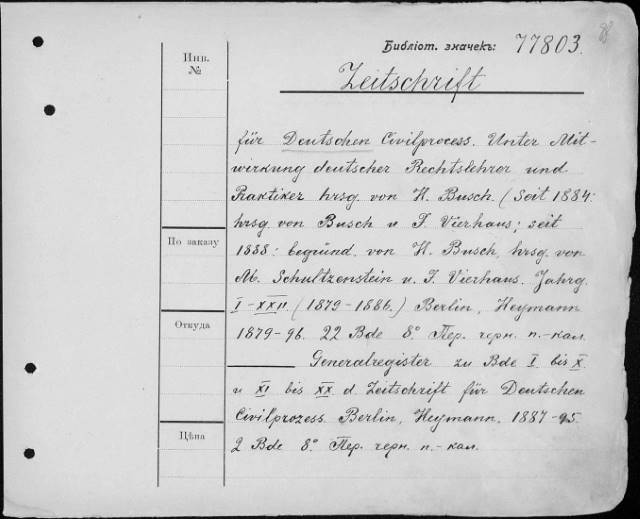 Библіот. значекъ: 77803.
Инв. №
Zeitschrift
für Deutschen Civilprocess. Unter Mit-
wirkung deutscher Rechtslehrer und
Praktiker hrsg. von H. Busch. (Seit 1884:
hrsg von Busch u F. Vierhaus; seit
1888: begründ. von H. Busch, hrsg. von
По заказу
M. Schultzenstein u. F. Vierhaus. Jahrg.
I-XXII. (1879-1886.) Berlin, Heymann
Откуда
1879-96. 22 Bde 8° Пер. черн. п.-кал.
Generalregister zu Bde I bis X
u XI bis XX d. Zeitschrift für Deutschen
Civilprozess. Berlin, Heymann, 1887-95.
Цѣна
2 Bde 8° Пер. черн. п.-кал.